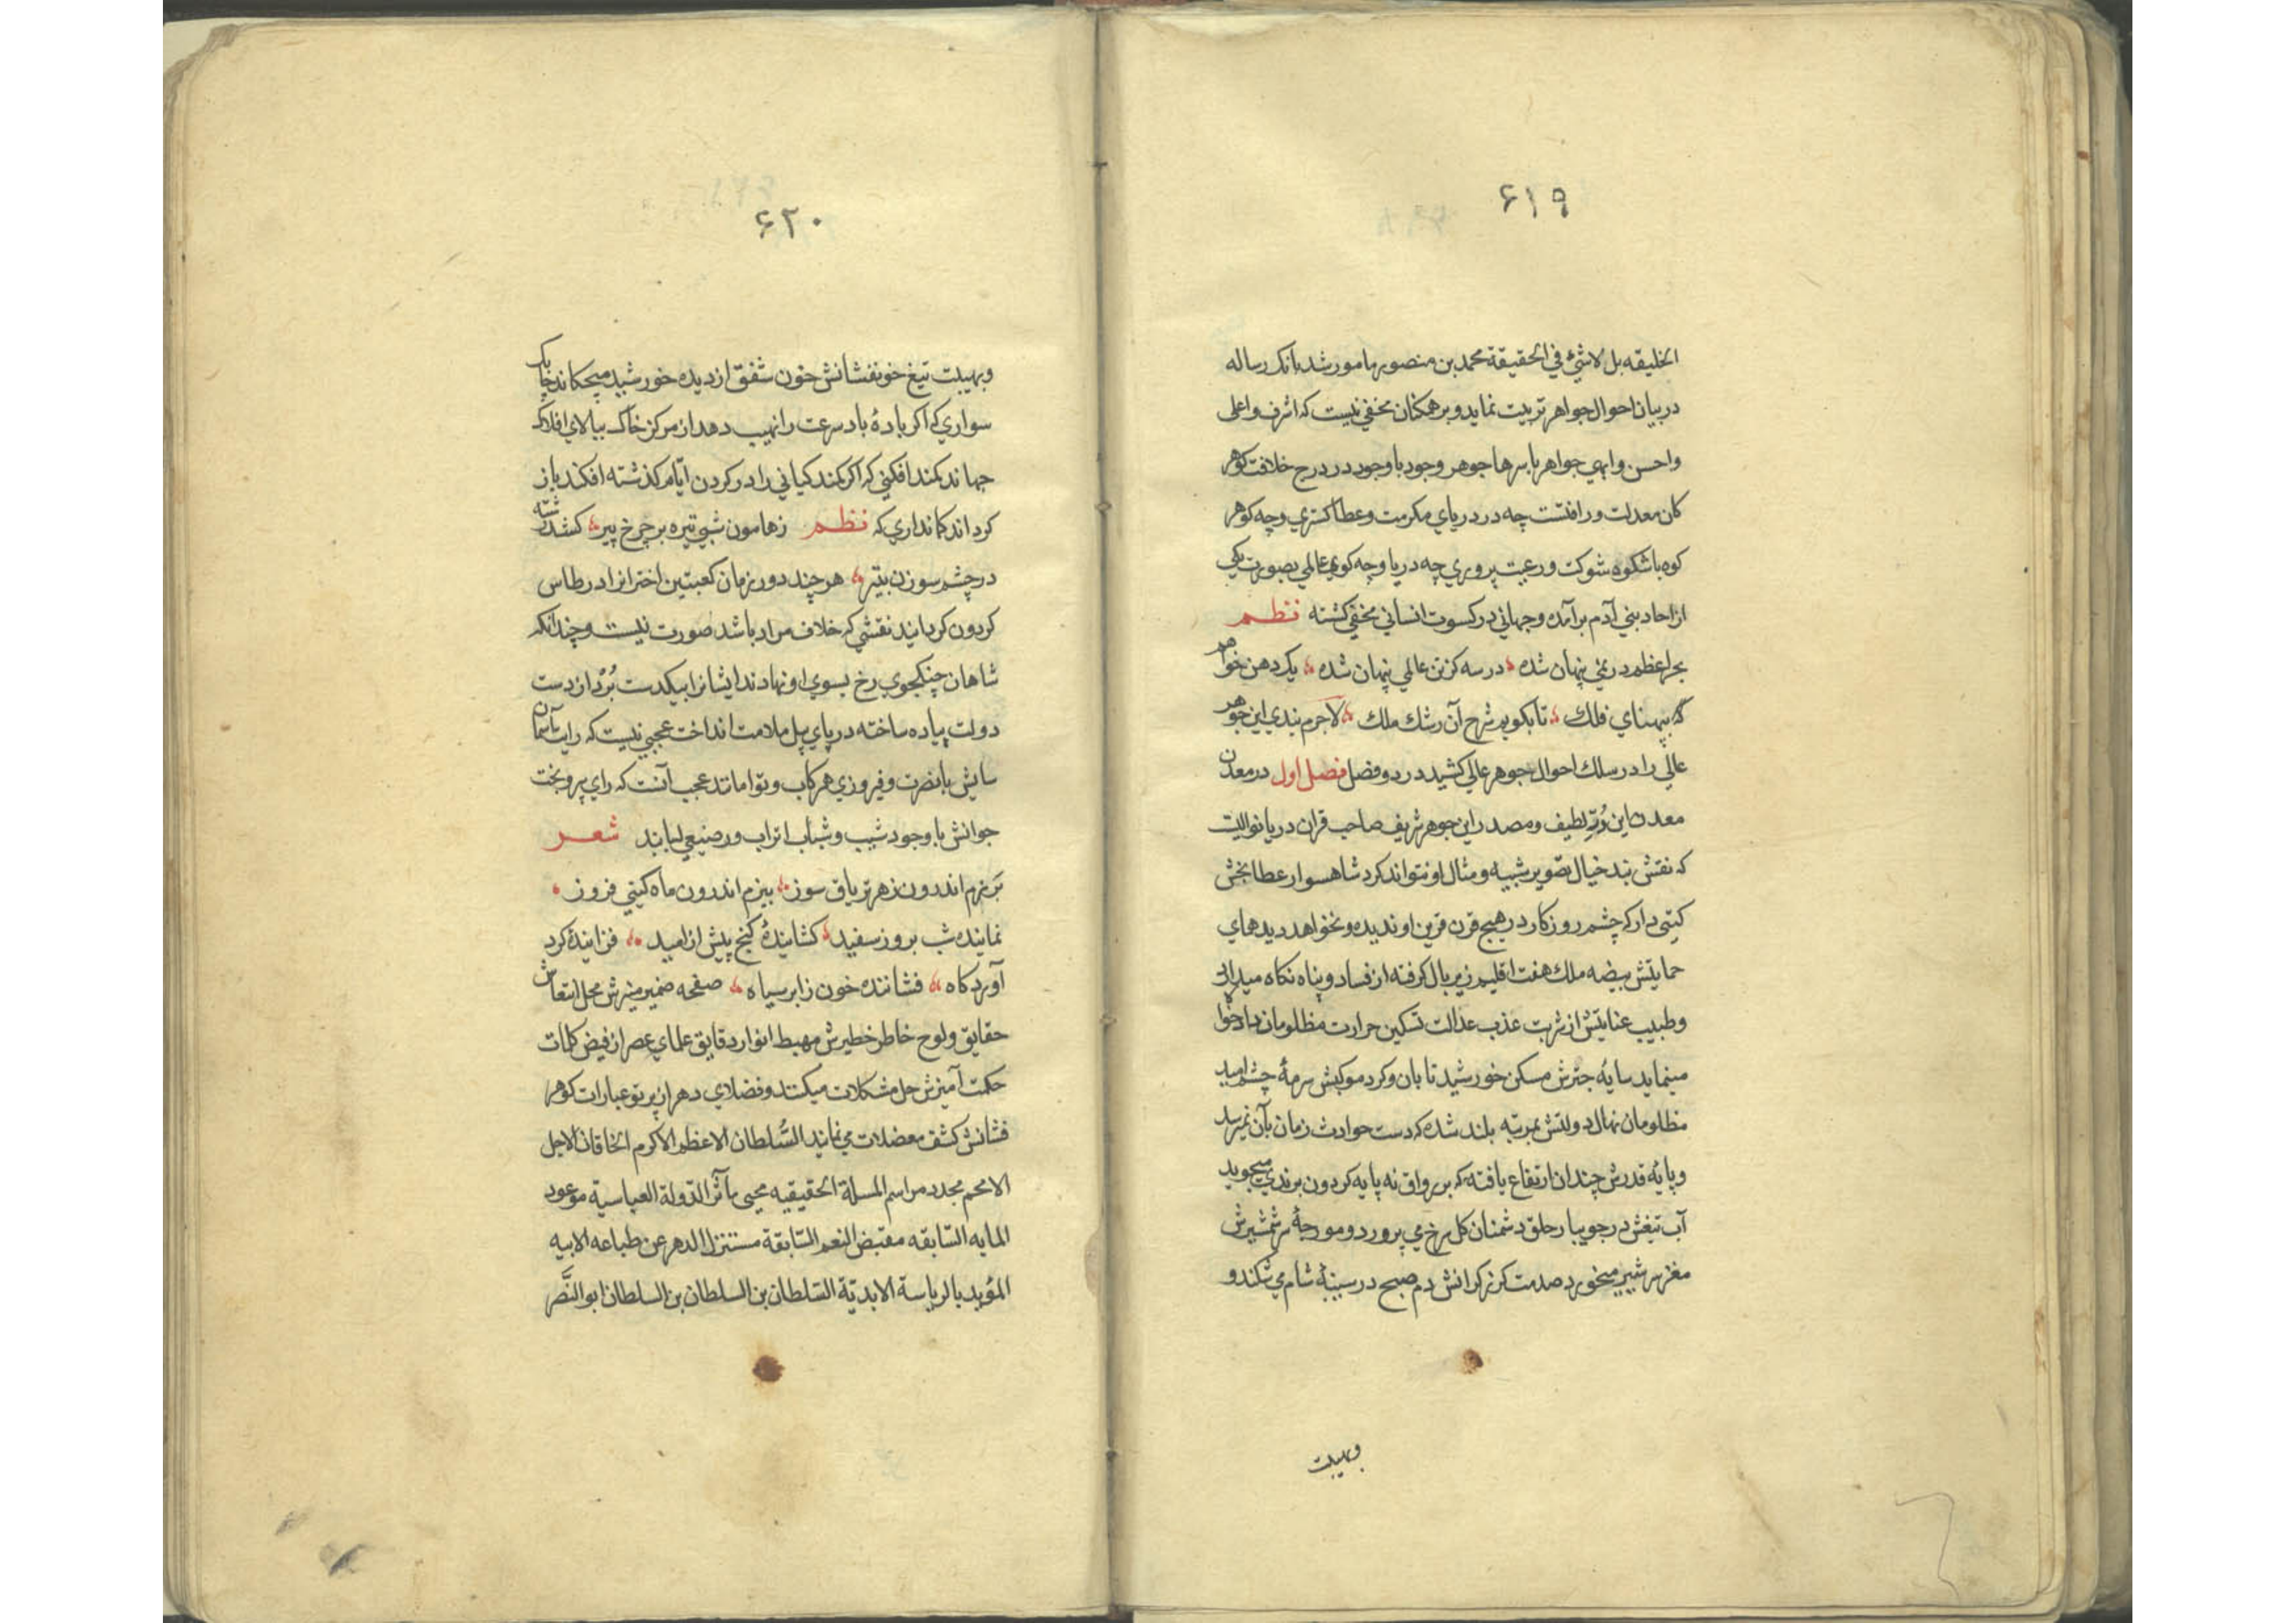 ۶۱۹
الخلیقه بل لاشئ في الحقیقة محمد بن منصور مامور شد بانک رساله
در بیان احوال جواهر تربیت نماید و بر همکنان مخفي نیست که اشرف و اعلی
و احسن و ابهي جواهر باسرها جوهر وجود با وجود در درج خلافت کوهر
کان معدلت و رافتست چه در دریاي مکرمت و عطا کستري و چه کوهر
کوه باشکوه شوکت و رعیت پروري چه دریا و چه کوه عالمي بصورت یکي
از احاد بني آدم برآمده و جهاني در کسوت انساني مخفي کشته نظم
بحر اعظم در نمي پنهان شده در سه کز تن عالمي پنهان شده یک دهن خواهم
که بپهناي فلک تا بکویم شرح آن رشک ملک لاجرم بندي این جوهر
عالي را در سلک احوال جوهر عالي کشید در دو فصل فصل اول در معدن
معدن این دُرّ لطیف و مصدر این جوهر شریف صاحب قران دریا نوالیست
که نقش بند خیال تصویر شبیه و مثال او نتواند کرد شاهسوار عطابخش
کیتی دار که چشم روزکار در هیچ قرن قرین او ندیده و نخواهد دید هماي
حمایتش بیضه ملک هفت اقلیم زیر بال کرفته از فساد و پناه نکاه میدارد
و طبیب عنایتش از شربت عذب عدالت تسکین حرارت مظلومان داد خواه
مینماید سایهٔ چترش مسکن خورشید تابان و کرد موکبش سرمهٔ چشم امید
مظلومان نهال دولتش بمرتبه بلند شده که دست حوادث زمان بآن نمیرسد
و پایهٔ قدرش چندان ارتفاع یافته که بر رواق نه پایه کردون برتري میجوید
آب تیغش در جویبار حلق دشمنان کل سرخ مي پرورد و مورچهٔ شمشیرش
مغز سر شیر میخورد صدمت کرز کرانش دم صبح در سینهٔ شام مي شکند و
وبهیبت
۶۲۰
و بهیبت تیغ خونفشانش خون شفق از دیده خورشید میچکاند چابک
سواري که اکر بادهٔ باد سرعت را نهیب دهد از مرکز خاک ببالاي افلاک
جهاند کمند افکني که اکر کمند کیاني را در کردن ایّام کذشته افکند باز
کرداند کمانداري که نظم ز هامون شبي تیره بر چرخ پیر کشد رشته
در چشم سوزن بتیر هر چند دور زمان کعبتین اختران را در طاس
کردون کردانید نقشي که خلاف مراد باشد صورت نیست و چندانکه
شاهان جنکجوي رخ بسوي او نهادند ایشان را بیکدست بُرد از دست
دولت پیاده ساخته در پاي پیل ملامت انداخت عجبي نیست که رایت آسمان
سایش با نصرت و فیروزي همرکاب و توامانند عجب آنست که راي پیر و بخت
جوانش با وجود شیب و شباب اتراب و رضیعي لبانند شعر
برزم اندرون زهر تریاق سوز ببزم اندرون ماه کیتي فروز
نماینده شب بروز سفید کشایندهٔ کنج پیش از امید فزایندهٔ کرد
آوردکاه فشاننده خون ز ابر سیاه صفحه ضمیر منیرش محل انتعاش
حقایق و لوح خاطر خطیرش مهبط انوار دقایق علماي عصر از فیض کلمات
حکمت آمیزش حل مشکلات میکنند و فضلاي دهر از پرتو عبارات کوهر
فشانش کشف معضلات مي نمایند السُّلطان الاعظم الاکرم الخاقان الاجل
الامحم مجدد مراسم المسلة الحقیقیه محیی مآثر الدّولة العباسیة موعود
المایه السّابقه مقتبض النعم السّابقة مستنزل الدهر عن طباعه الابیه
المؤید بالریاسة الابدیّة السّلطان بن السلطان بن السلطان ابو النَّصر